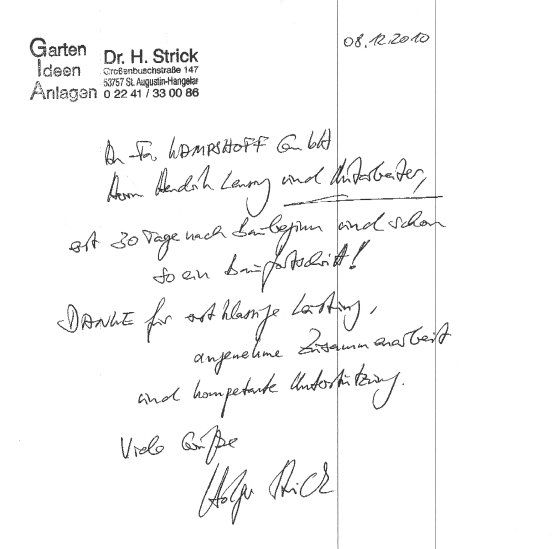 08.12.2010
Garten
Ideen
Anlagen
Dr. H. Strick
Großenbuschstraße 147
53757 St. Augustin-Hangelar
0 22 41 / 33 00 86
An Fa. WAMPSHOFF GmbH
Herrn Hendrik und Mitarbeiter,
erst 30 Tage nach Baubeginn und schon
so ein Baufortschritt!
DANKE für erstklassige Leistung,
angenehme Zusammenarbeit
und kompetente Unterstützung.
Viele Grüße
Holger Strick